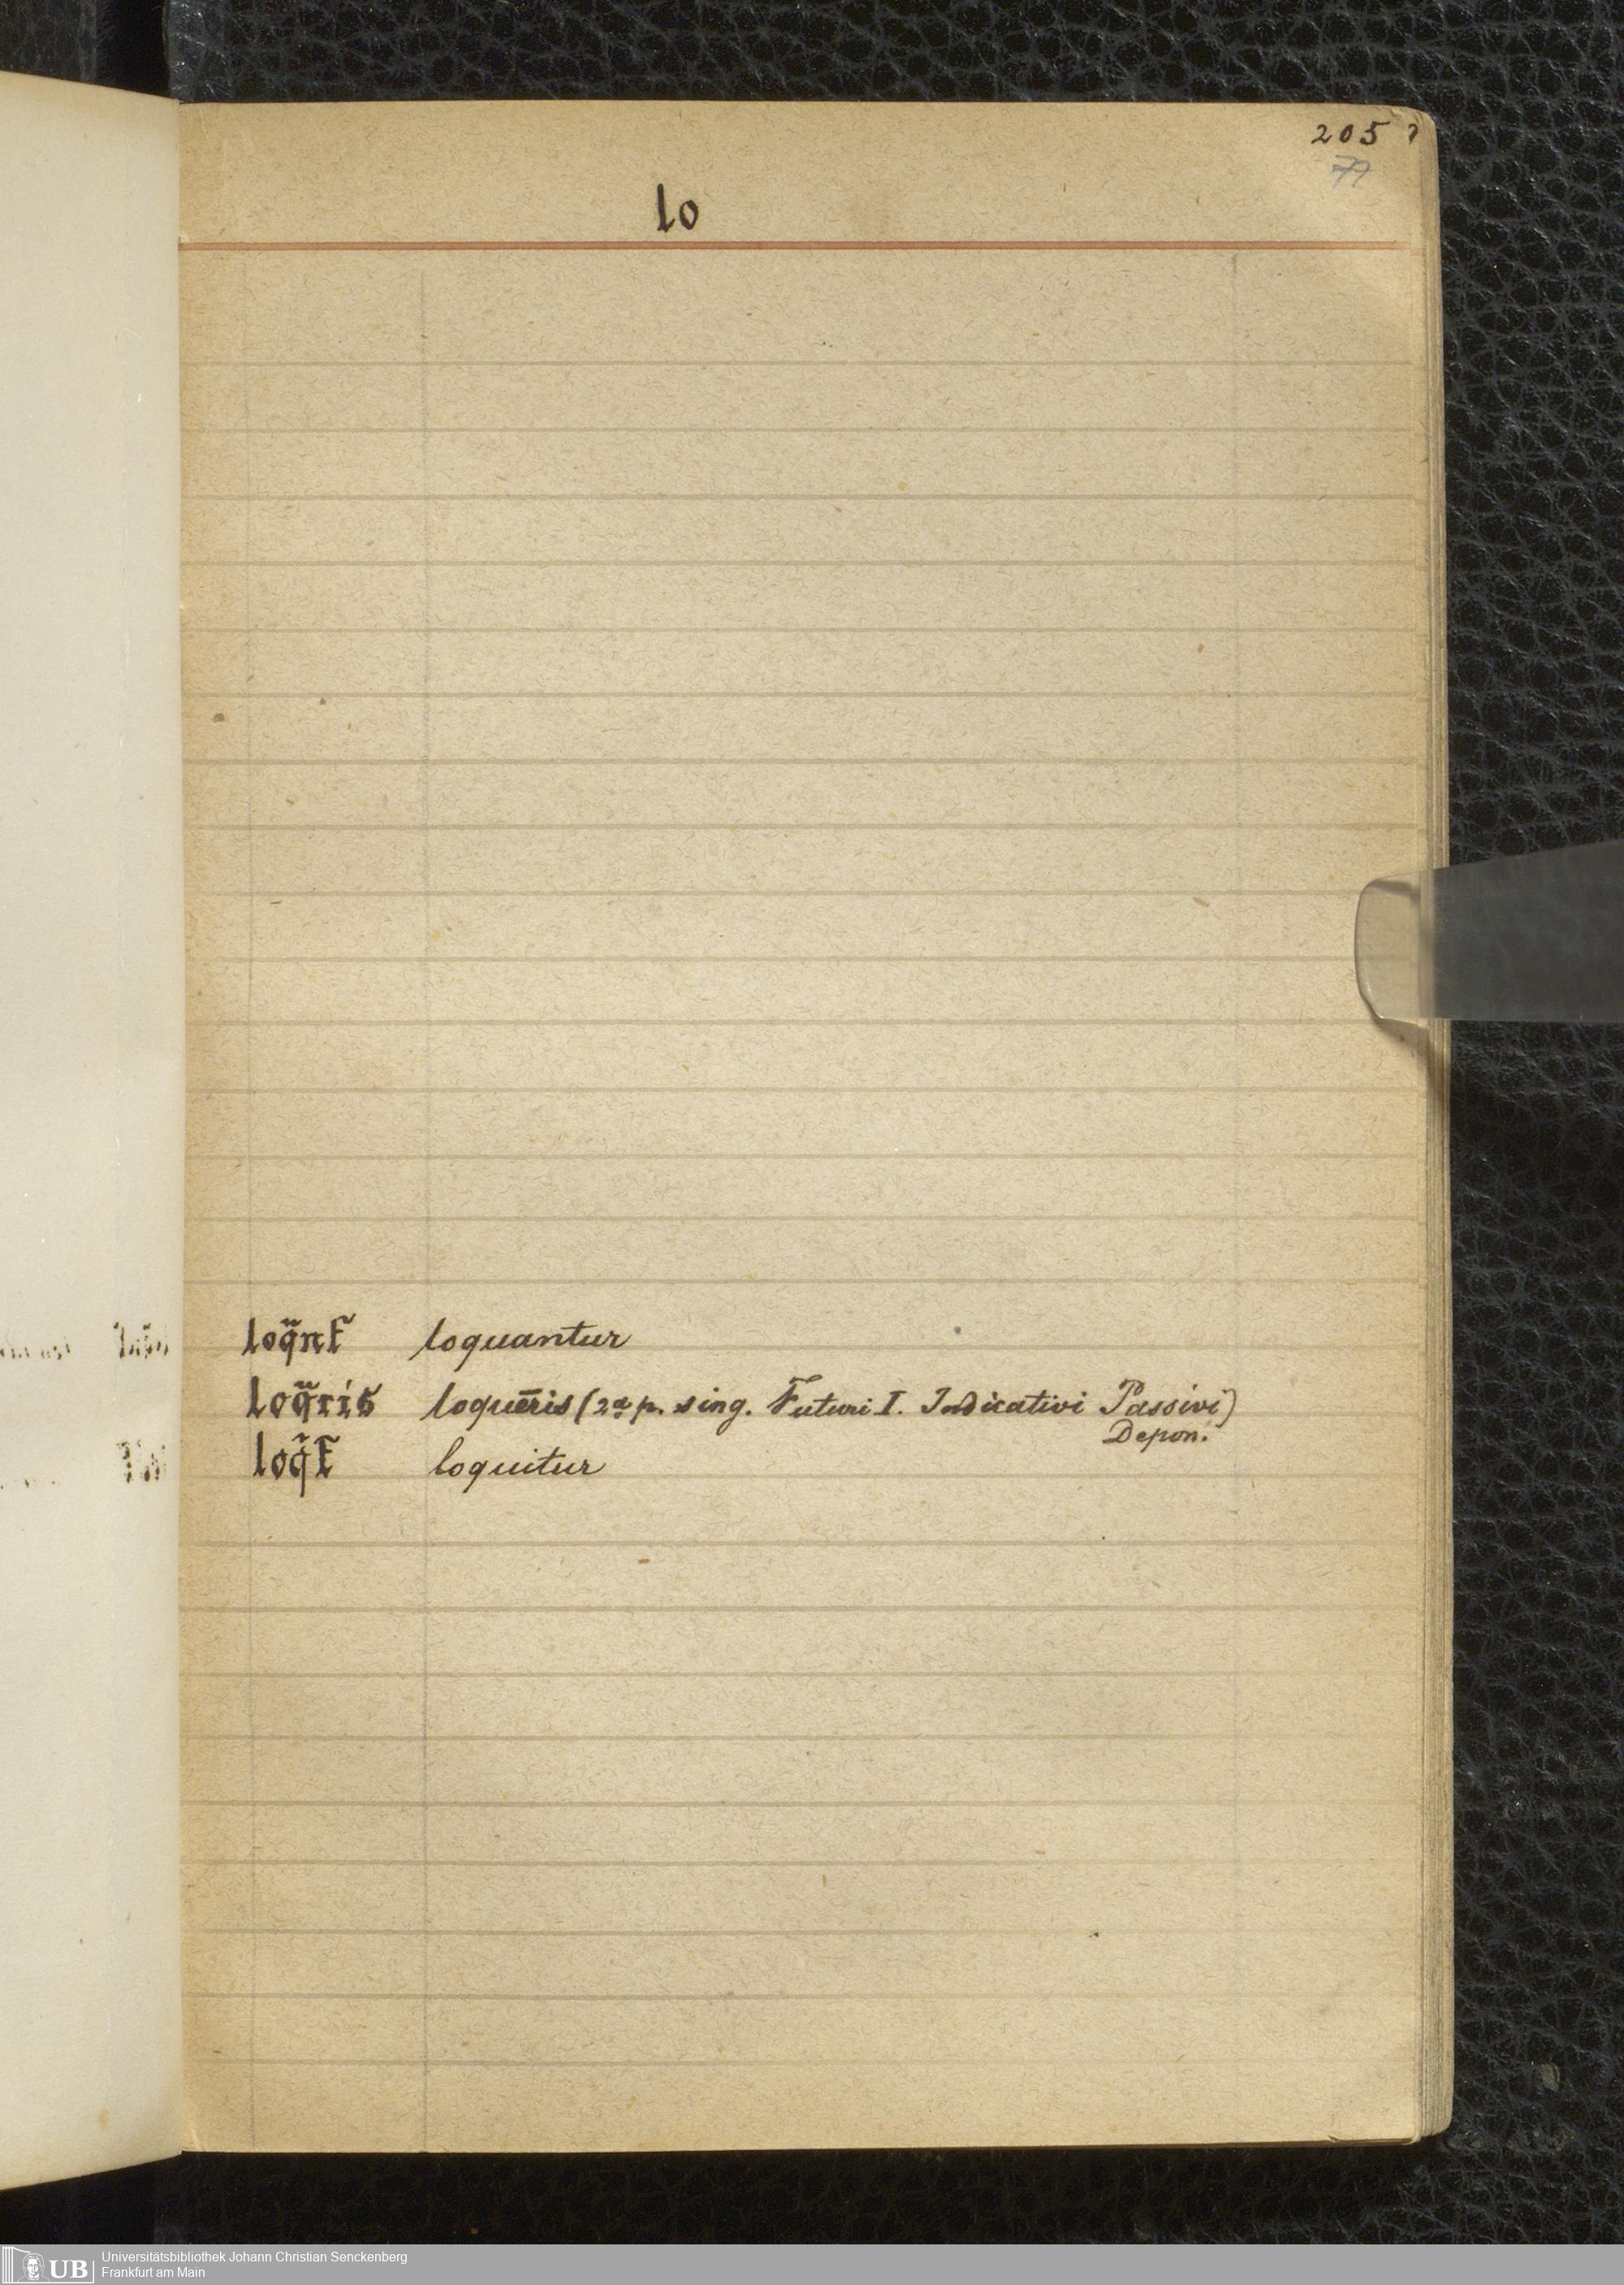 205
79
lo
loq̃nt̃ loquantur
loq̃ris loquēris (2ª p. sing. Futuri I. Indicativi Passivi)
Depon.
loq̃t̃ loquitur
UB Universitätsbibliothek Johann Christian Senckenberg
Frankfurt am Main